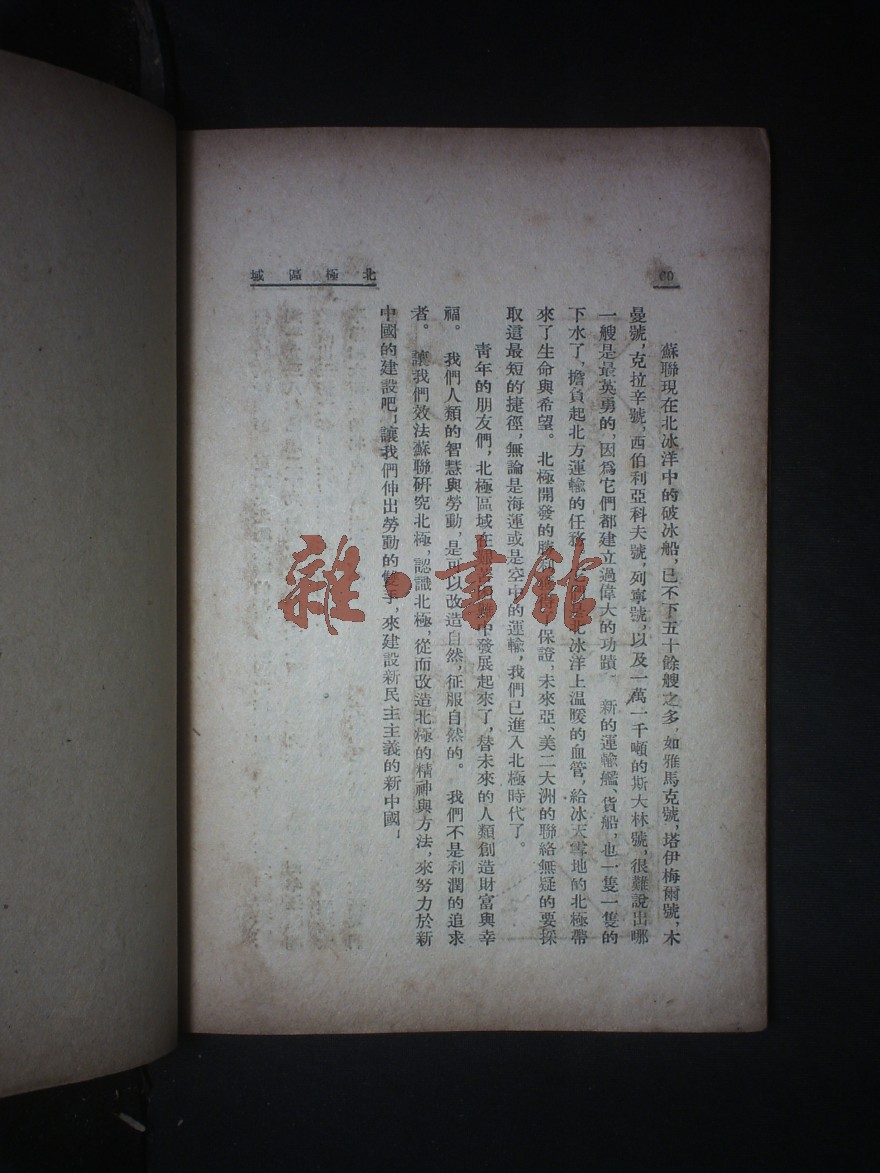 60
北極區域
蘇聯現在北冰洋中的破冰船，已不下五十餘艘之多，如雅馬克號，塔伊梅爾號，木
曼號，克拉辛號，西伯利亞科夫號，列寧號，以及一萬一千噸的斯大林號，很難說出哪
一艘是最英勇的，因爲它們都建立過偉大的功蹟。新的運輸艦、貨船，也一隻一隻的
下水了，擔負起北方運輸的任務，是北冰洋上温暖的血管，給冰天雪地的北極帶
來了生命與希望。北極開發的勝利保證，未來亞、美二大洲的聯絡無疑的要採
取這最短的捷徑，無論是海運或是空中的運輸，我們已進入北極時代了。
青年的朋友們，北極區域在中發展起來了，替未來的人類創造財富與幸
福。我們人類的智慧與勞動，是可以改造自然，征服自然的。我們不是利潤的追求
者。讓我們效法蘇聯研究北極，認識北極，從而改造北極的精神與方法，來努力於新
中國的建設吧，讓我們伸出勞動的雙手，來建設新民主主義的新中國！
雜·書館